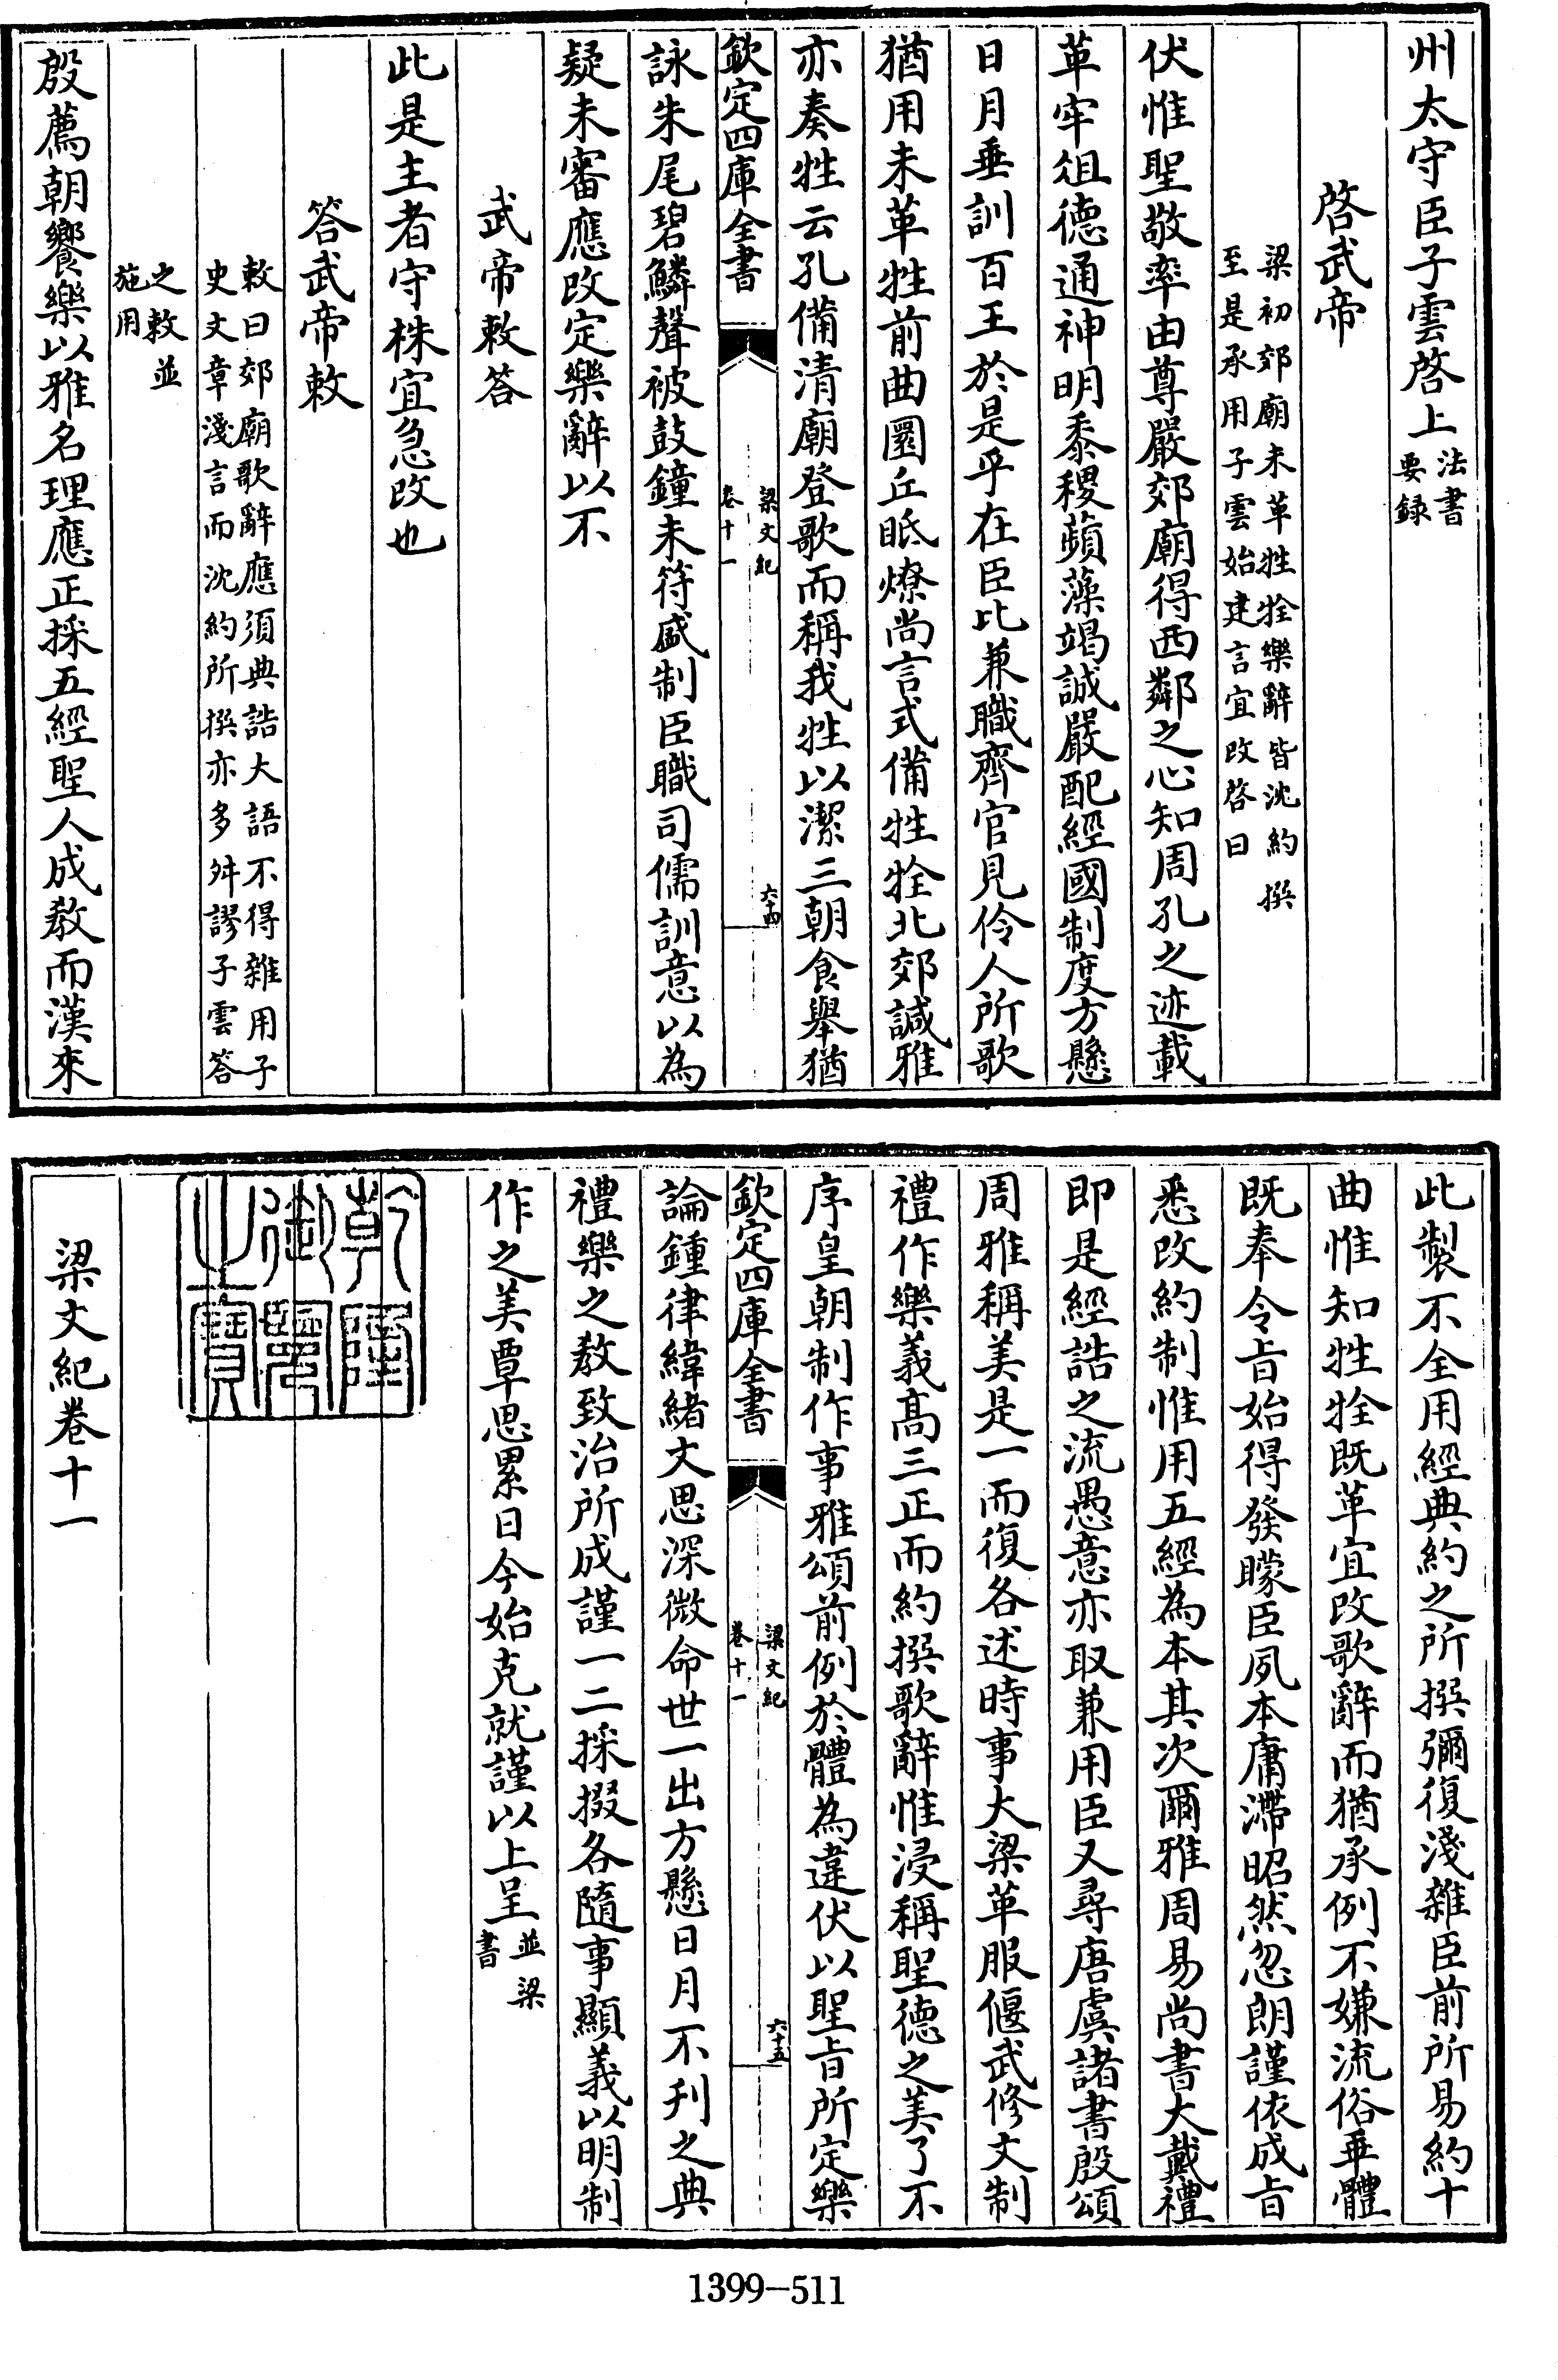 州太守臣子雲啓上法書
要録
啓武帝
梁初郊廟未革牲牷樂辭皆沈約撰
至是承用子雲始建言宜改啓曰
伏惟聖敬率由尊嚴郊廟得西鄰之心知周孔之迹載
革牢俎德通神明黍稷蘋藻竭誠嚴配經國制度方懸
日月垂訓百王於是乎在臣比兼職齊官見伶人所歌
猶用未革牲前曲圜丘眡燎尚言式備牲牷北郊諴雅
亦奏牲云孔備清廟登歌而稱我牲以潔三朝食舉猶
欽定四庫全書
梁文紀
卷十一
六十四
詠朱尾碧鱗聲被鼓鐘未符盛制臣職司儒訓意以為
疑未審應改定樂辭以不
武帝敕答
此是主者守株宜急改也
答武帝敕
敕曰郊廟歌辭應須典誥大語不得雜用子
史文章淺言而沈約所撰亦多舛謬子雲答
之敕並
施用
殷薦朝饗樂以雅名理應正採五經聖人成教而漢來
此製不全用經典約之所撰彌復淺雜臣前所易約十
曲惟知牲牷既革宜改歌辭而猶承例不嫌流俗乖體
既奉令旨始得發矇臣夙本庸滯昭然忽朗謹依成旨
悉改約制惟用五經為本其次爾雅周易尚書大戴禮
即是經誥之流愚意亦取兼用臣又尋唐虞諸書殷頌
周雅稱美是一而復各述時事大梁革服偃武修文制
禮作樂義高三正而約撰歌辭惟浸稱聖德之美了不
序皇朝制作事雅頌前例於體為違伏以聖旨所定樂
欽定四庫全書
梁文紀
卷十一
六十五
論鍾律緯緒文思深微命世一出方懸日月不刊之典
禮樂之教致治所成謹一二採掇各隨事顯義以明制
作之美覃思累日今始克就謹以上呈並梁
書
乾隆
御覽
之寶
梁文紀卷十一
1399-511